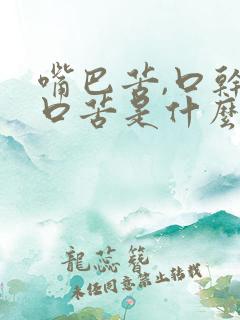 嘴巴苦,口幹
口苦是什麽
龍蕊簪
未经同意禁止转载